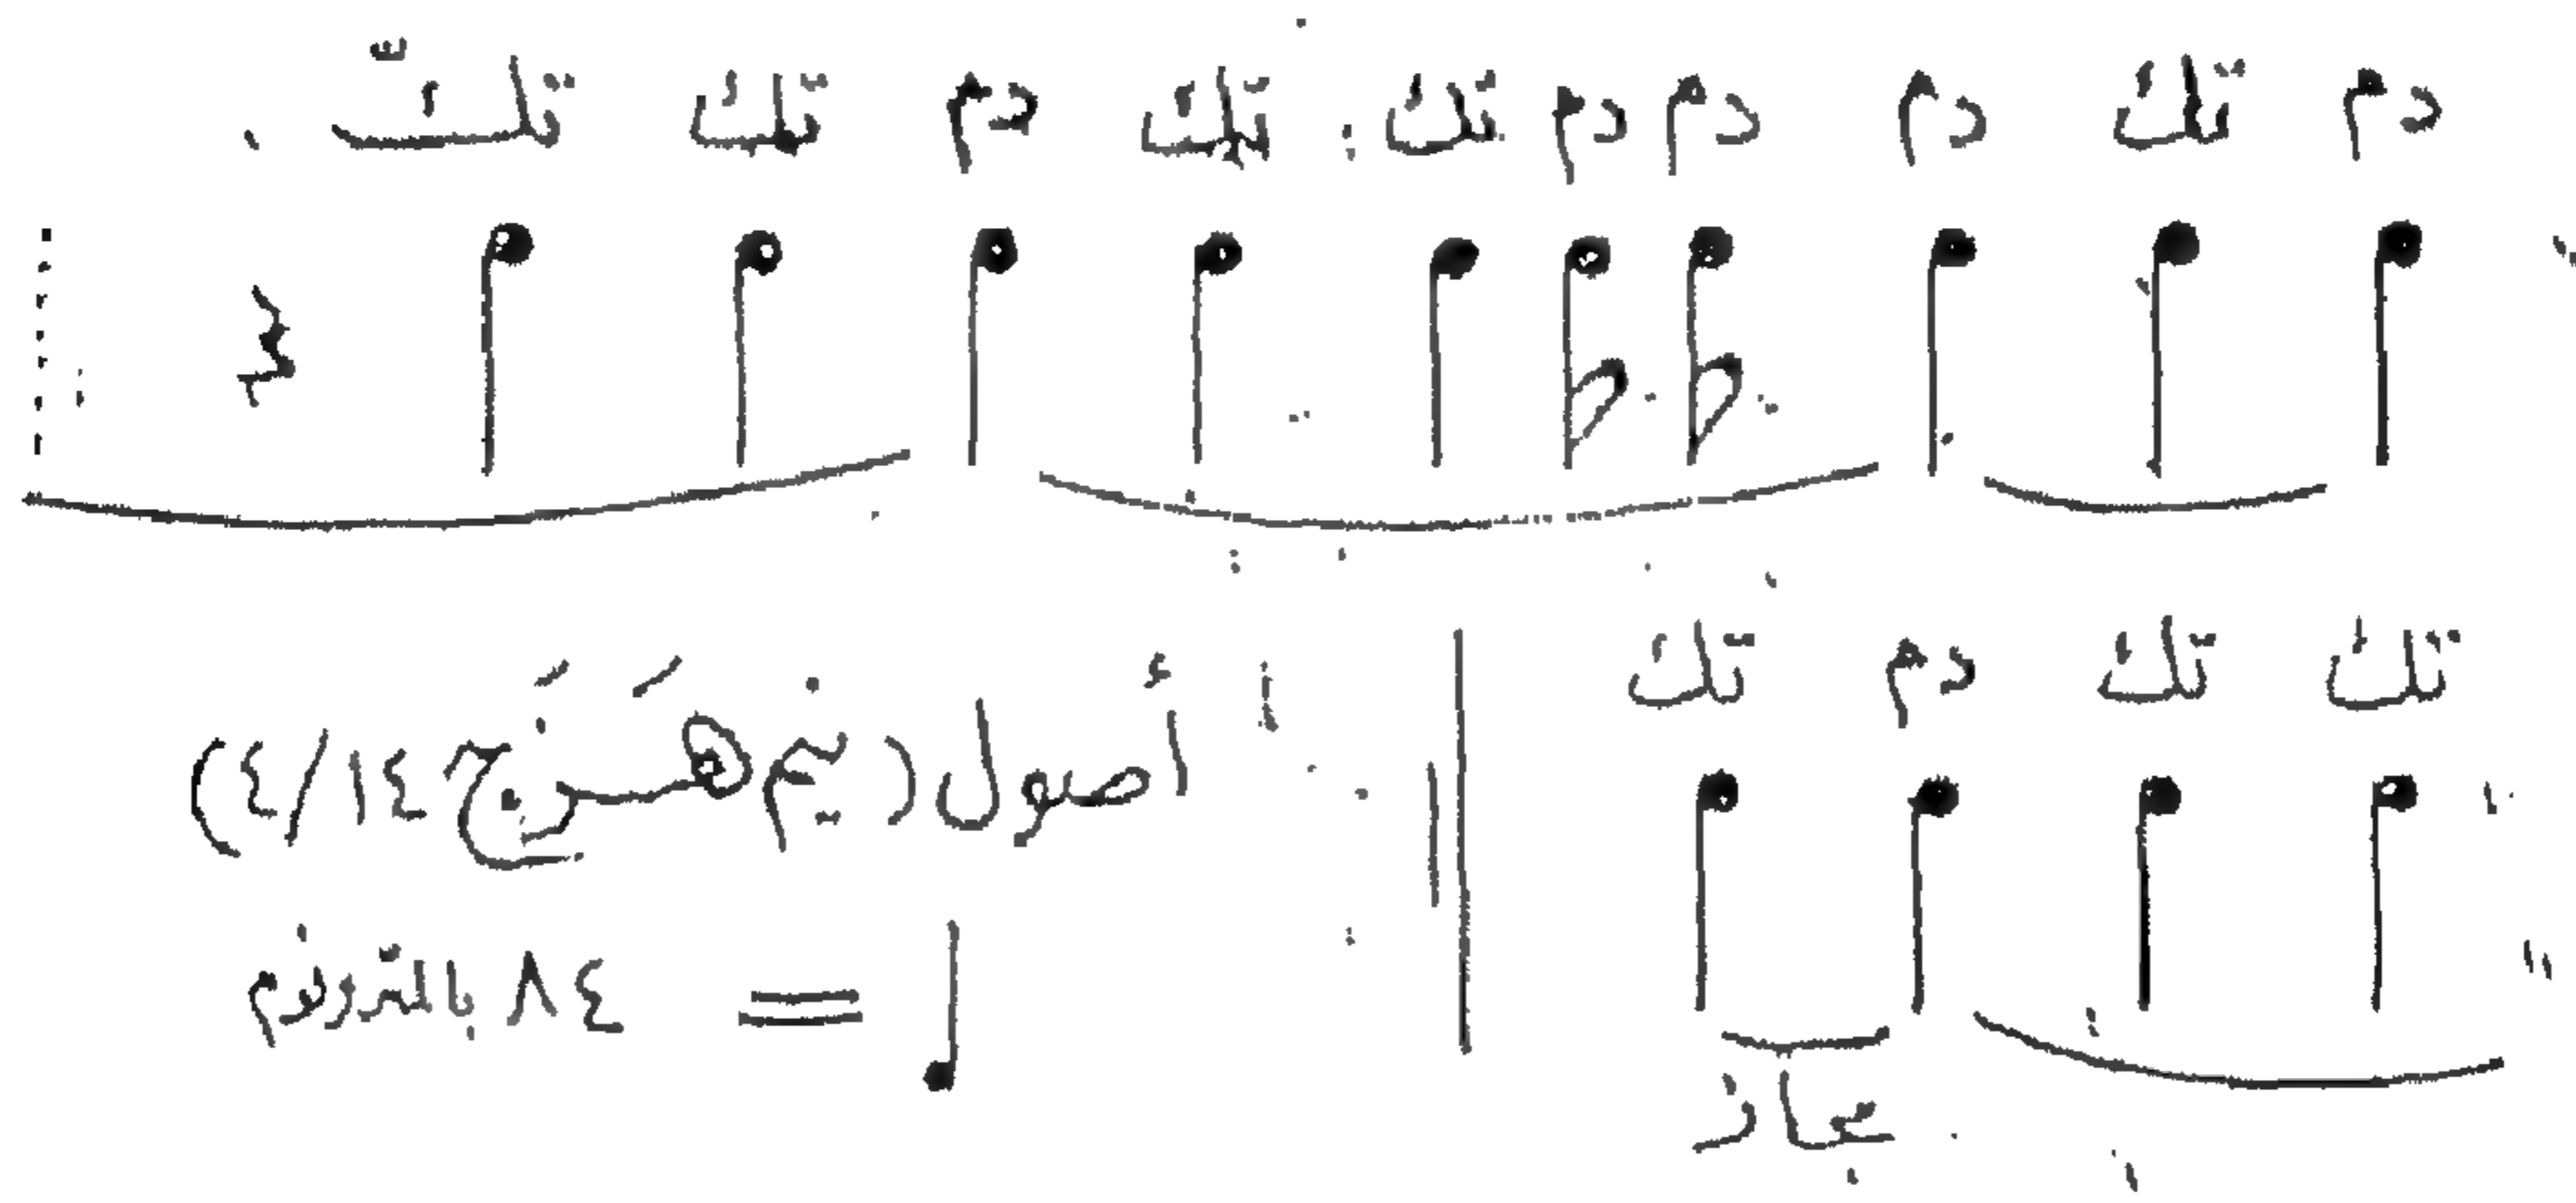 دم تك دم دم دم تك تك دم تك تك
تك تك دم تك
أصول (نيم هَزَج ١٤/٤)
= ٨٤ بالمترونوم